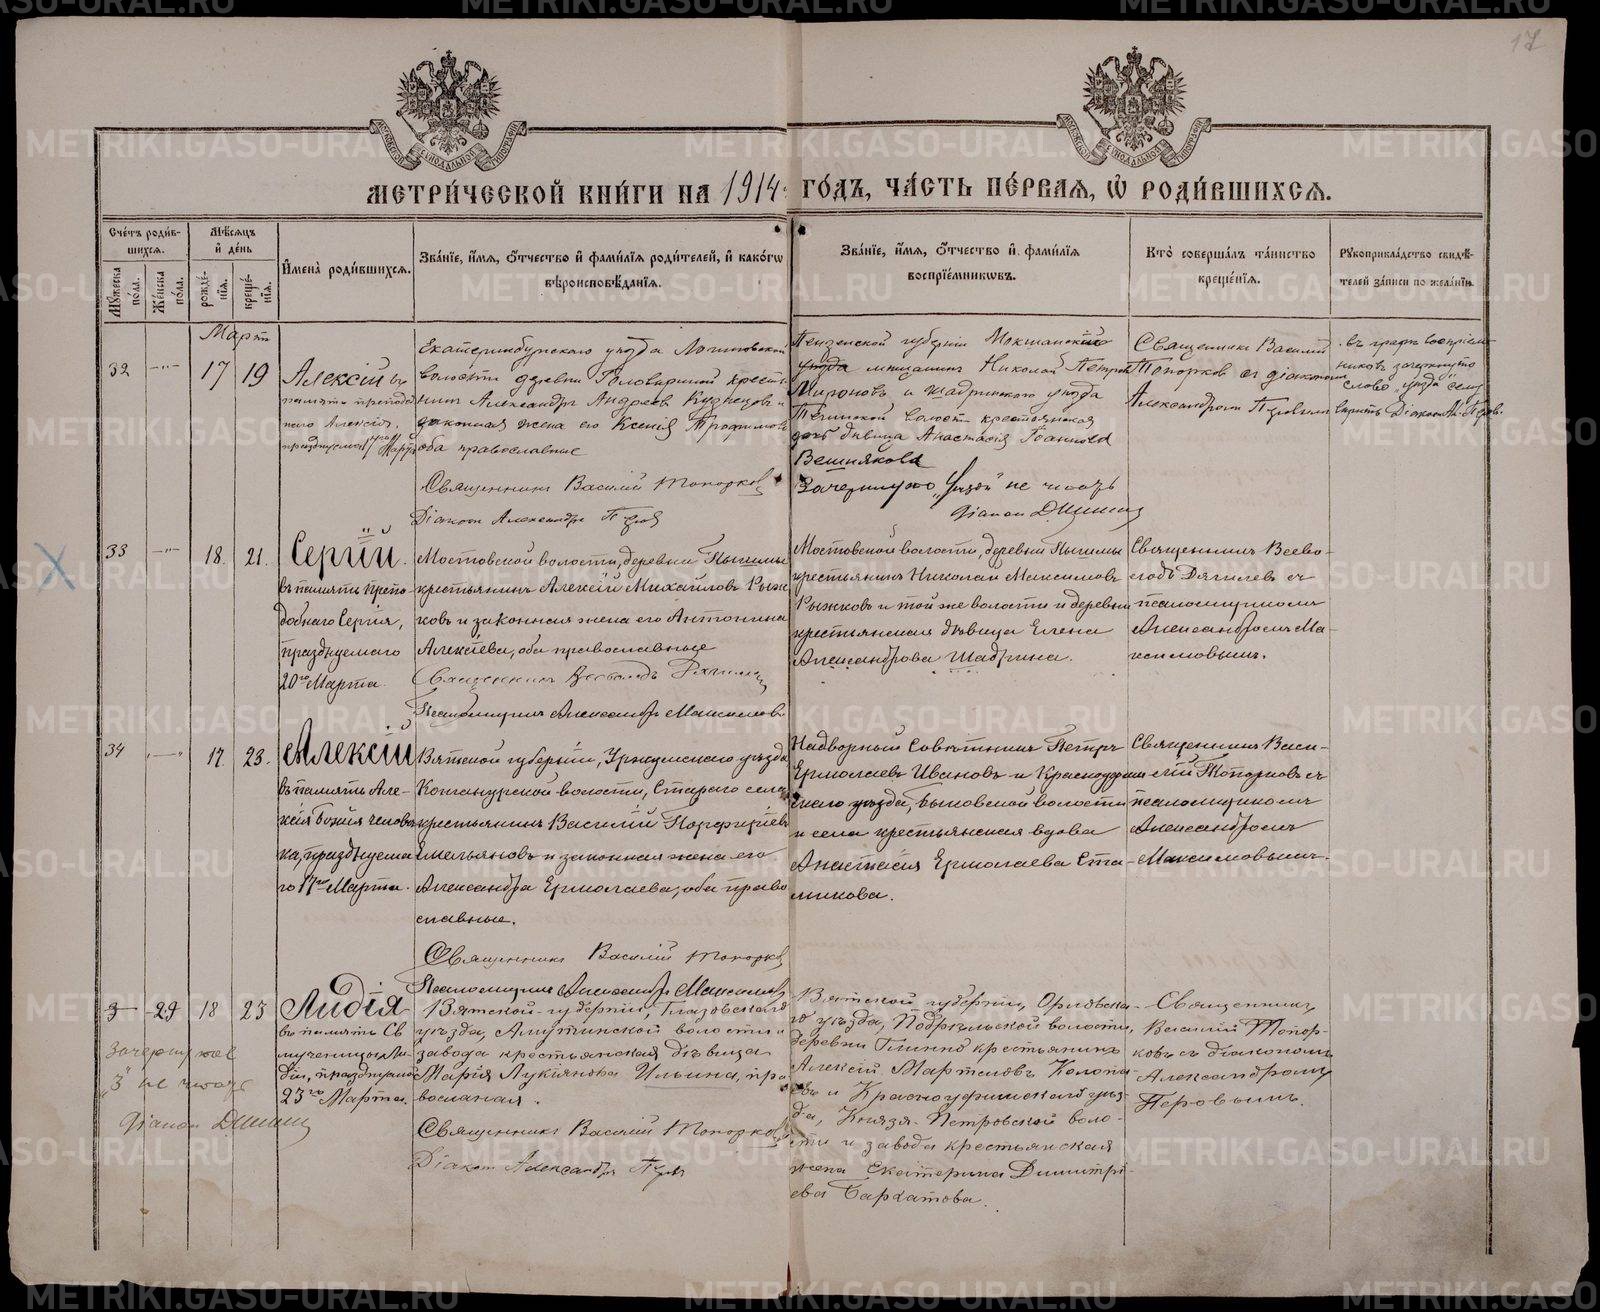 17
МЕТРИ́ЧЕСКОЙ КНИ́ГИ НА 1914 ГО́ДЪ, ЧА́СТЬ ПЕ́РВАЯ, Ѡ҆ РОДИ́ВШИХСЯ.
Сче́тъ роди́в-
шихся.
Му́жеска по́ла.
Же́нска по́ла.
Мѣ́сяцъ и҆ де́нь
рожде́-
нія.
креще́-
нія.
И҆мена̀ роди́вшихся.
Зва́ніе, и҆́мя, ѻ҆́тчество и҆ фами́лїя роди́телей, и҆ како́гѡ
вѣроисповѣ́данїя.
Зва́ніе, и҆́мя, ѻ҆́тчество и҆ фами́лїя
воспрїе́мникѡвъ.
Кто̀ соверша́лъ та́инство
креще́нїя.
Рукоприкла́дство свидѣ́-
телей за́писи по жела́нїю.
Мартъ
32
17
19
Алексій въ
память преподо
наго Алексія,
празднуемаго 17го Марта
Екатеринбургскаго уѣзда Логиновской
волости деревни Головыриной кресть-
нинъ Александръ Андреевъ Кузнецовъ и
законная жена его Ксенія Трофимова
оба православные
Священникъ Василій Топорковъ
Діаконъ Александръ Перовъ
Пензенской губерніи Мокшанскаго
уѣзда мѣщанинъ Николай Петровъ
Мироновъ и Шадринского уѣзда
волост. крестьянская
дочь дѣвица Анастасія Іоаннова
Вешнякова
Зачеркнуто „уѣзда" не читать
Діакон
Священникъ Василій
Топорковъ съ діакономъ
Александромъ Перовымъ
въ графѣ воспріем-
никовъ зачеркнуто
слово „уѣзда" сему
вѣрить Діаконъ А. Перовъ.
33
18.
21.
Сергій.
въ память Препо-
добнаго Сергія,
празднуемаго
20го Марта.
Мостовской волости, деревни Пышмы
крестьянинъ Алексій Михайловъ Рыж-
ковъ и законная жена его Антонина
Алексіева, оба православные
Священникъ Всеволодъ Дягилевъ
Псаломщикъ Александръ Максимовъ
Мостовской волости, деревни Пышмы
крестьянинъ Николай Максимовъ
Рыжковъ и той же волости и деревни
крестьянская дѣвица Елена
Александрова Шадрина.
Священникъ Всево-
лодъ Дягилевъ съ
псаломщикомъ
Александромъ Ма-
ксимовымъ.
34
17.
23.
Алексій
въ память Але-
ксія Божія челов
ка, празднуема
го 17го Марта.
Вятской губерніи, Уржумскаго уѣзда
Конганурской волости, Стараго села
крестьянинъ Василій Порфиріевъ
Емельяновъ и законная жена его
Александра Ермолаева, оба право
славные.
Священникъ Василій Топорков
Псаломщикъ Александръ Максимовъ
Надворный Совѣтникъ Петръ
Ермолаевъ Ивановъ и Красноуфим-
скаго уѣзда, Быковской волости
и села крестьянская вдова
Анастасія Ермолаева Ста-
никова.
Священникъ Васи-
лій Топорковъ съ
псаломщикомъ
Александромъ
Максимовымъ.
3
29
18
23
Лидія
въ память Св
мученицы Ли-
діи, праздуемой
23го Марта.
Вятской губерніи, Глазовскаго
уѣзда, Омутнинской волости и
завода крестьянская дѣвица
Марія Лукіянова Ильина, пра
вославная.
Священникъ Василій Топорковъ
Діаконъ Александръ Перовъ
Вятской губерніи, Орловска-
го уѣзда, Подрѣльской волости,
деревни крестьянинъ
Алексій Мартеловъ Колопа-
въ и Красноуфимскаго уѣз-
да, Князе-Петровской воло-
сти и завода крестьянская
жена Екатерина Димитрі-
ева Бархатова.
Священникъ
Василій Топор-
ковъ съ діакономъ
Александромъ
Перовымъ.
зачеркнутое
„3" не читать
Діакон
METRIKI.GASO-URAL.RU